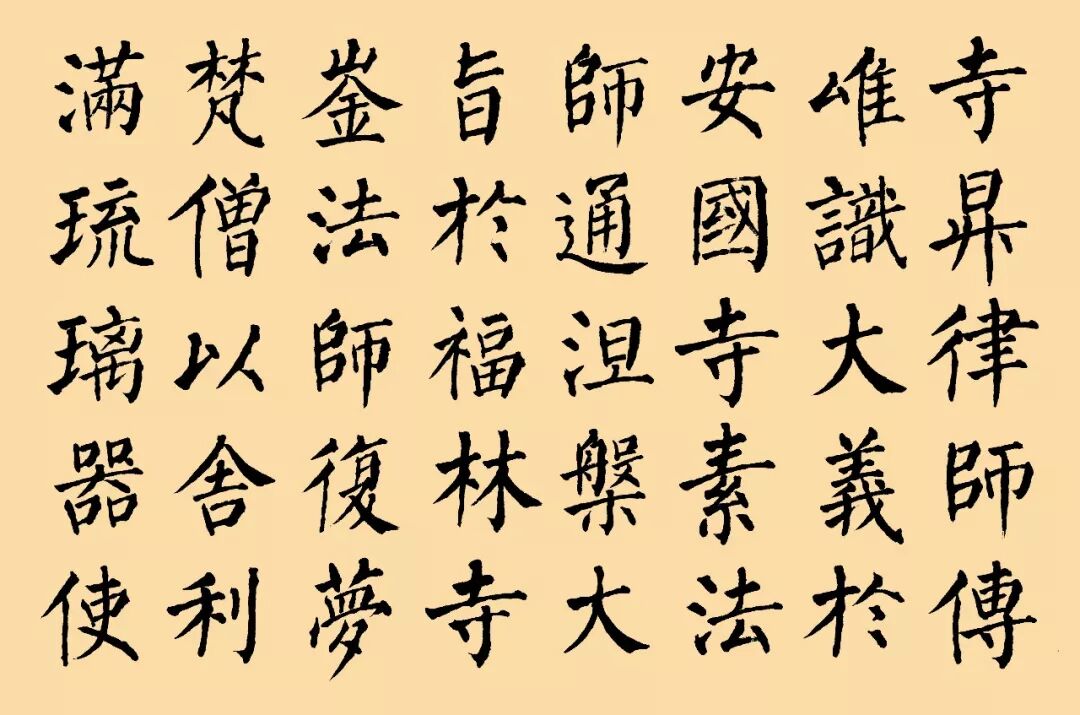 寺昇律師傳
唯識大義於
安國寺素法
師通涅槃大
旨於福林寺
崟法師復夢
梵僧以舍利
滿琉璃器使